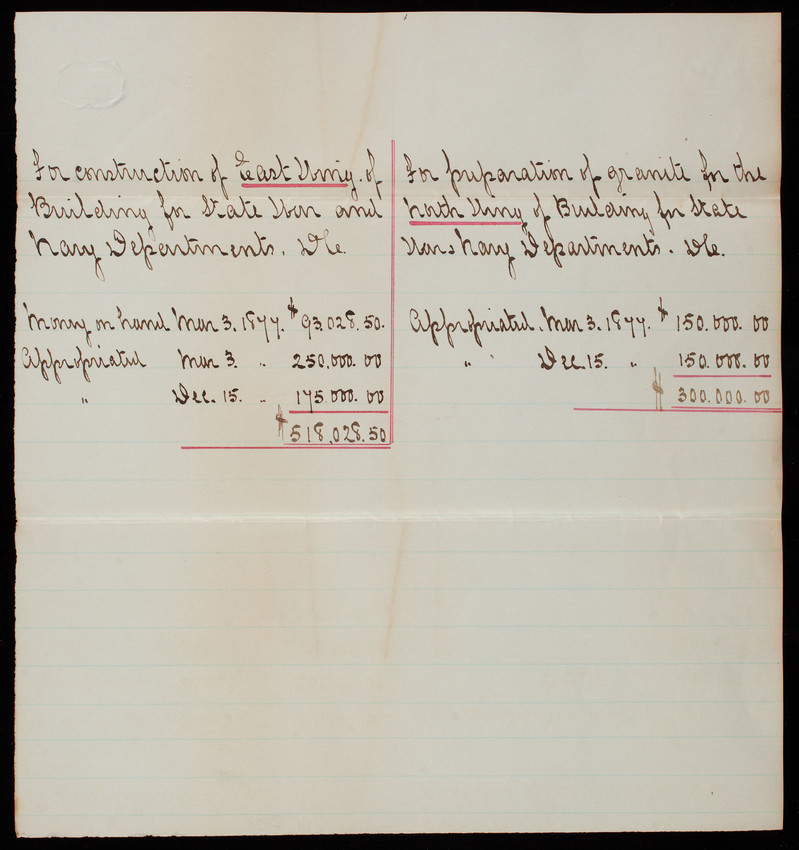 For construction of East Wing of
Building for State War and
Navy Departments. &c.
Money on hand Mar 3. 1877. $ 93,028.50.
Appropriated Mar 3. " 250,000.00
" Dec. 15. " 175,000.00
$ 518,028.50
For preparation of granite for the
North Wing of Building for State
War & Navy Departments. &c.
Appropriated. Mar 3. 1877. $ 150.000.00
" " Dec 15. " 150.000.00
$ 300.000.00